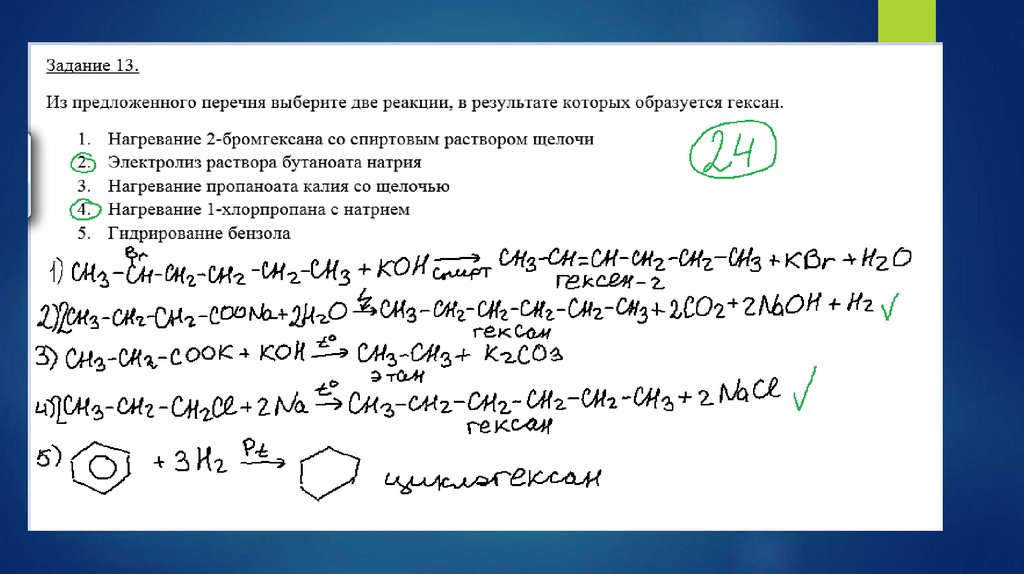 Задание 13.
Из предложенного перечня выберите две реакции, в результате которых образуется гексан.
1. Нагревание 2-бромгексана со спиртовым раствором щелочи
2. Электролиз раствора бутаноата натрия
3. Нагревание пропаноата калия со щелочью
4. Нагревание 1-хлорпропана с натрием
5. Гидрирование бензола
24
Br
1) CH3-CH-CH2-CH2-CH2-CH3 + KOH спирт CH3-CH=CH-CH2-CH2-CH3 + KBr + H2O
гексен-2
2) 2CH3-CH2-CH2-COONa+2H2O → CH3-CH2-CH2-CH2-CH2-CH3+2CO2+2NaOH + H2
гексан
3) CH3-CH2-COOK + KOH t° → CH3-CH3 + K2CO3
этан
4) 2CH3-CH2-CH2Cl + 2Na t° → CH3-CH2-CH2-CH2-CH2-CH3 + 2NaCl
гексан
5) + 3H2 Pt → циклогексан